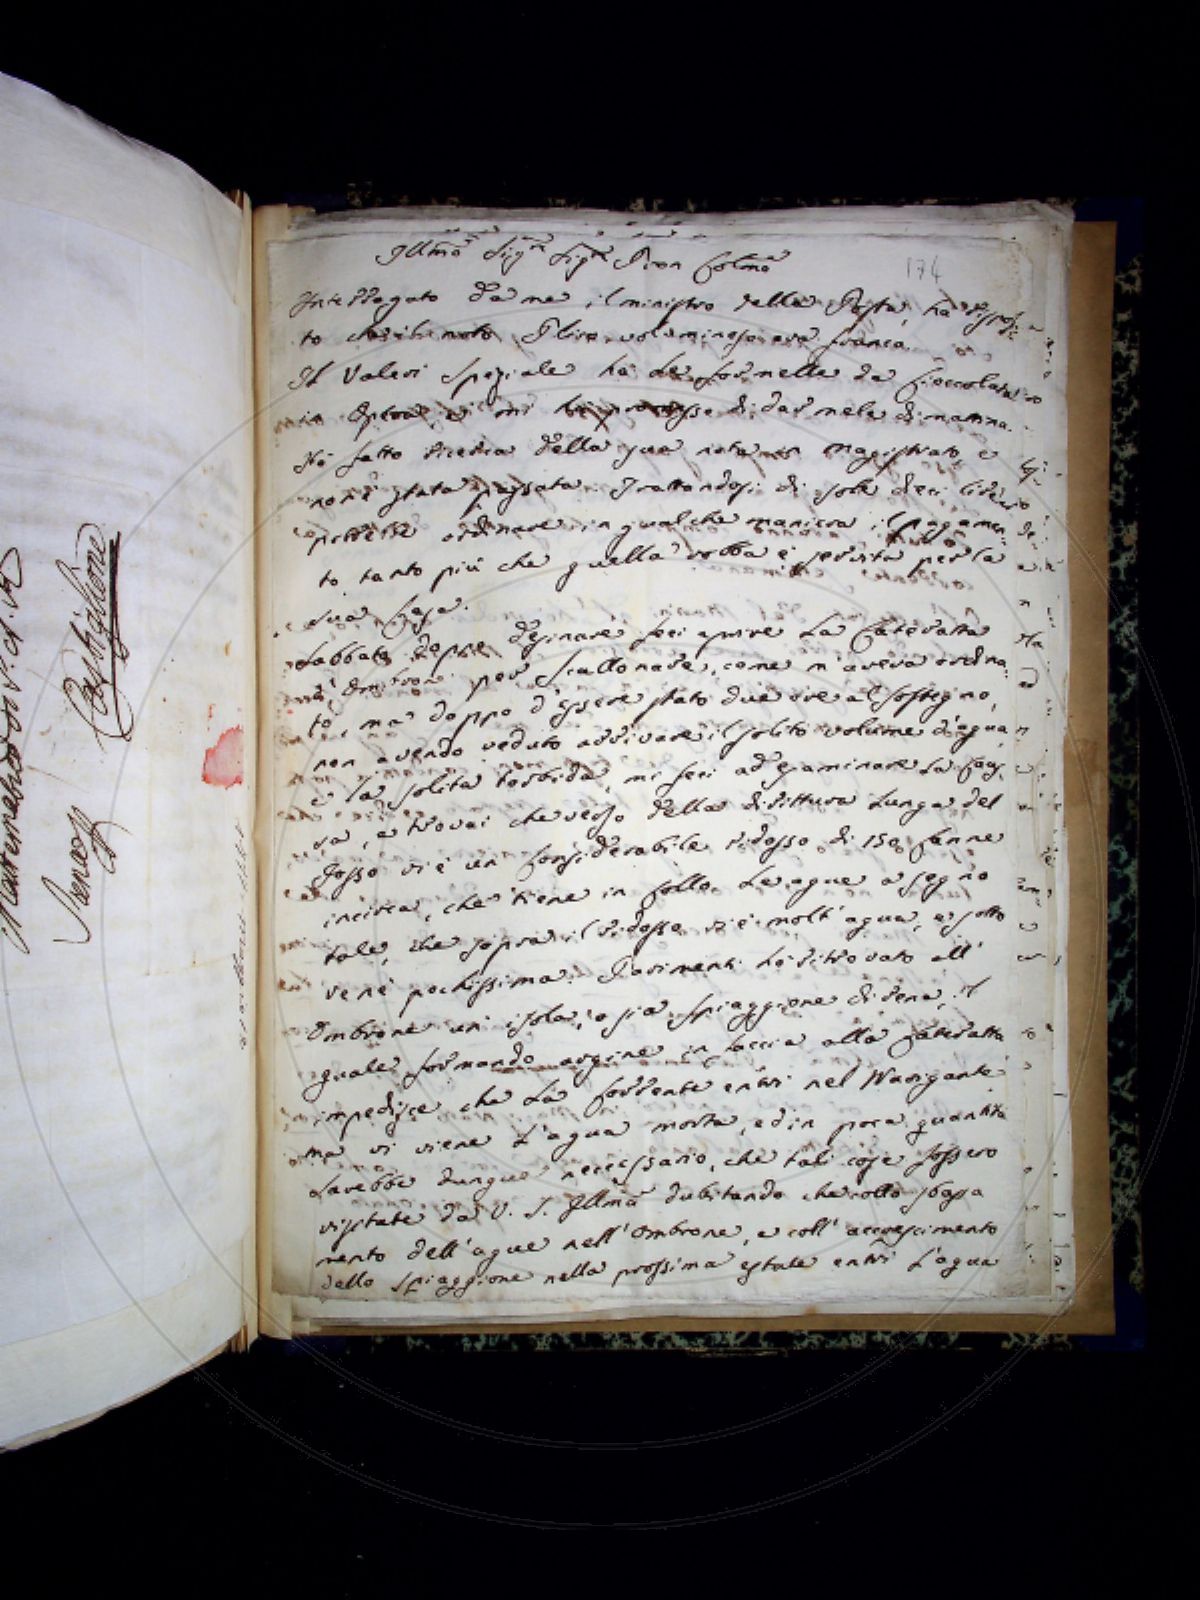 Illmo Sigr Sigr Pron Colmo
174
Interrogato da me il ministro della Posta, ha rispos:
to che il noto Plico voluminoso era franco.
Il Valeri Speziale ha le formelle da Cioccolata
in e mi promesse di darmele dimattina.
Hò fatto ricerca della sua nota in Magistrato, e
non è stata passata. Trattandosi di sole dieci lire
potrebbe ordinare in qualche maniera il pagamen:
to tanto più che quella robba è servita per la
sua Casa.
Sabbato doppo desinare feci aprire la Cateratta
per scallonare, come m'aveva ordina:
to, ma doppo d'essere stato due ore al sostegno,
non avendo veduto arrivare il solito volume d'acqua,
e la solita torbida, mi feci ad esaminare la
, e trovai che verso della dirittura lunga del
Fosso vi è un considerabile ridosso di 150 Canne
incirca, che tiene in collo le aque a segno
tale, che sopra il ridosso vi è molt'aqua, e sotto
ve n'è pochissima. Parimenti hò ritrovato all'
Ombrone un' isola, o sia spiaggione di rena, il
quale formando argine in faccia alla Cateratta
impedisce che la corrente entri nel Navigante
ma vi viene l'aqua morta, ed in poca quantità
Sarebbe dunque necessario, che tali cose fossero
visitate da V. S. Illma dubitando che collo sbassa
mento dell'aque nell'Ombrone, e coll'accrescimento
dello spiaggione nella prossima estate entri l'aqua
Castiglione